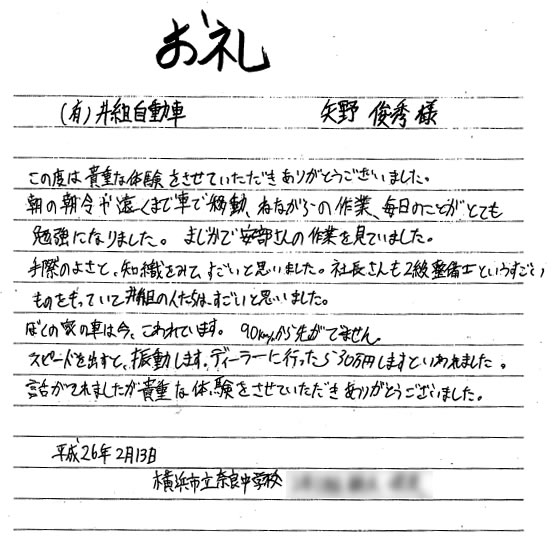 お礼
(有)井組自動車 矢野 俊秀 様
この度は貴重な体験をさせていただきありがとうございました。
朝の朝令や遠くまで車で移動、ねながらの作業、毎日のことがとても
勉強になりました。まじかで安部さんの作業を見ていました。
手際のよさと、知識をみて、すごいと思いました。社長さんも2級整備士というすごい
ものをもっていて井組の人たちは、すごいと思いました。
ぼくの家の車は今、こわれています。90km/hから先がでません。
スピードを出すと、振動します。ディーラーに行ったら30万円しますといわれました。
話がそれましたが貴重な体験をさせていただきありがとうございました。
平成26年2月13日
横浜市立奈良中学校